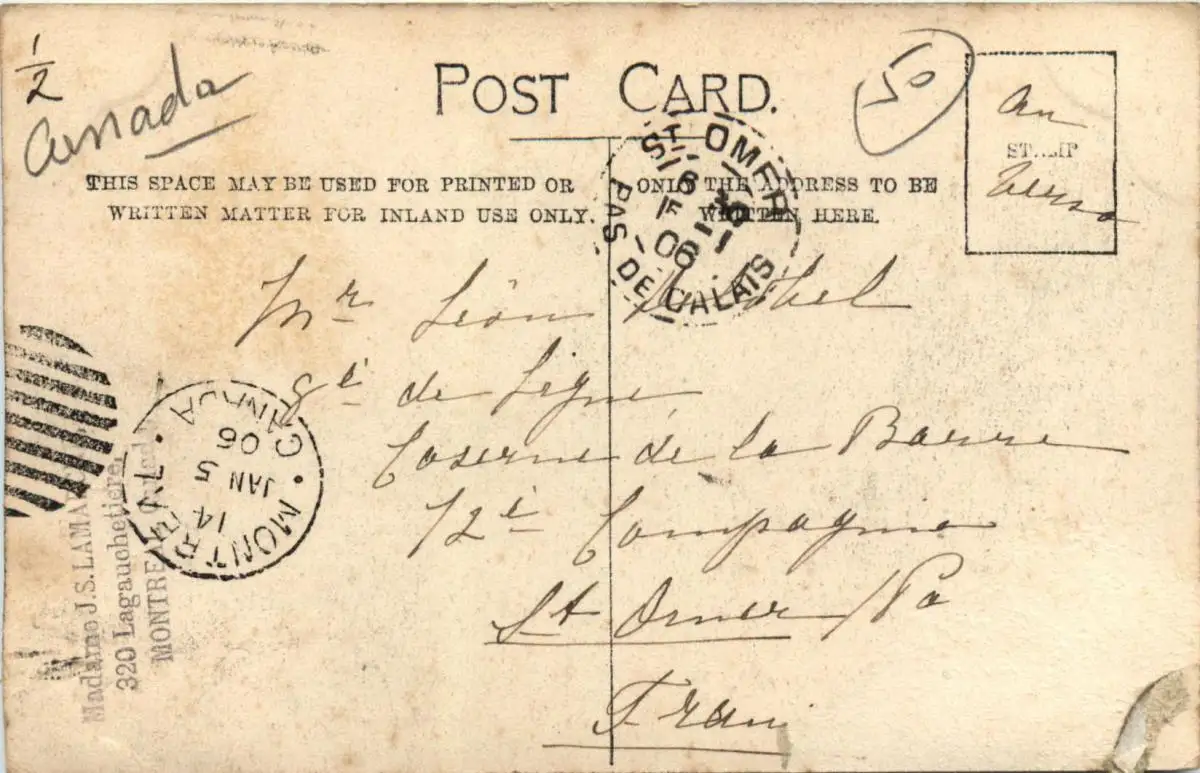 1/2
Canada
POST CARD.
50
THIS SPACE MAY BE USED FOR PRINTED OR
WRITTEN MATTER FOR INLAND USE ONLY.
ONLY THE ADDRESS TO BE
WRITTEN HERE.
STAMP
au
verso
ST OMER
PAS DE CALAIS
Mr Léon
8e de Ligne
Caserne de la Barre
12e Compagnie
St Omer
Fran
MONTREAL
CANADA
14
JAN 5
06
Madame J.S.
320 Lagauchetiere
MONTREAL